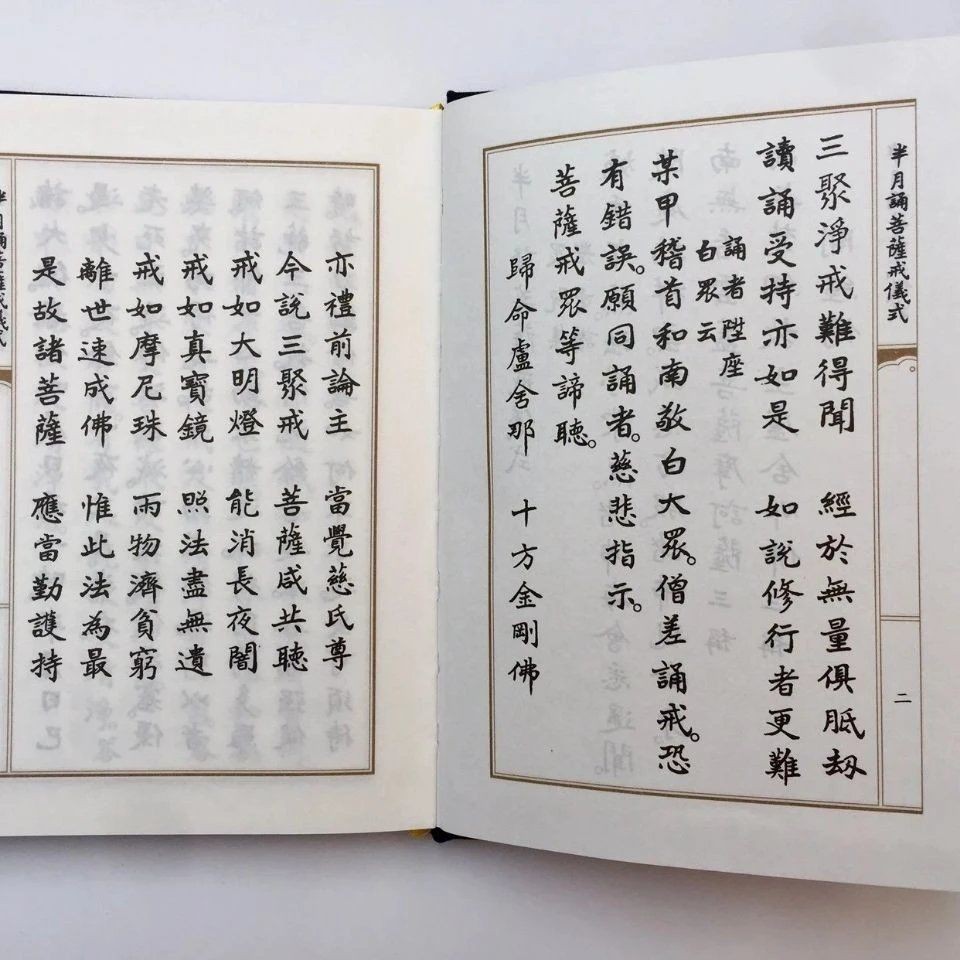 半月誦菩薩戒儀式
二
三聚淨戒難得聞 經於無量俱胝劫
讀誦受持亦如是 如說修行者更難
誦者陞座
白眾云
某甲稽首和南敬白大眾。僧差誦戒。恐
有錯誤。願同誦者。慈悲指示。
菩薩戒眾等諦聽。
歸命盧舍那 十方金剛佛
亦禮前論主 當覺慈氏尊
今說三聚戒 菩薩咸共聽
戒如大明燈 能消長夜闇
戒如真寶鏡 照法盡無遺
戒如摩尼珠 雨物濟貧窮
離世速成佛 惟此法為最
是故諸菩薩 應當勤護持
半月誦菩薩戒儀式